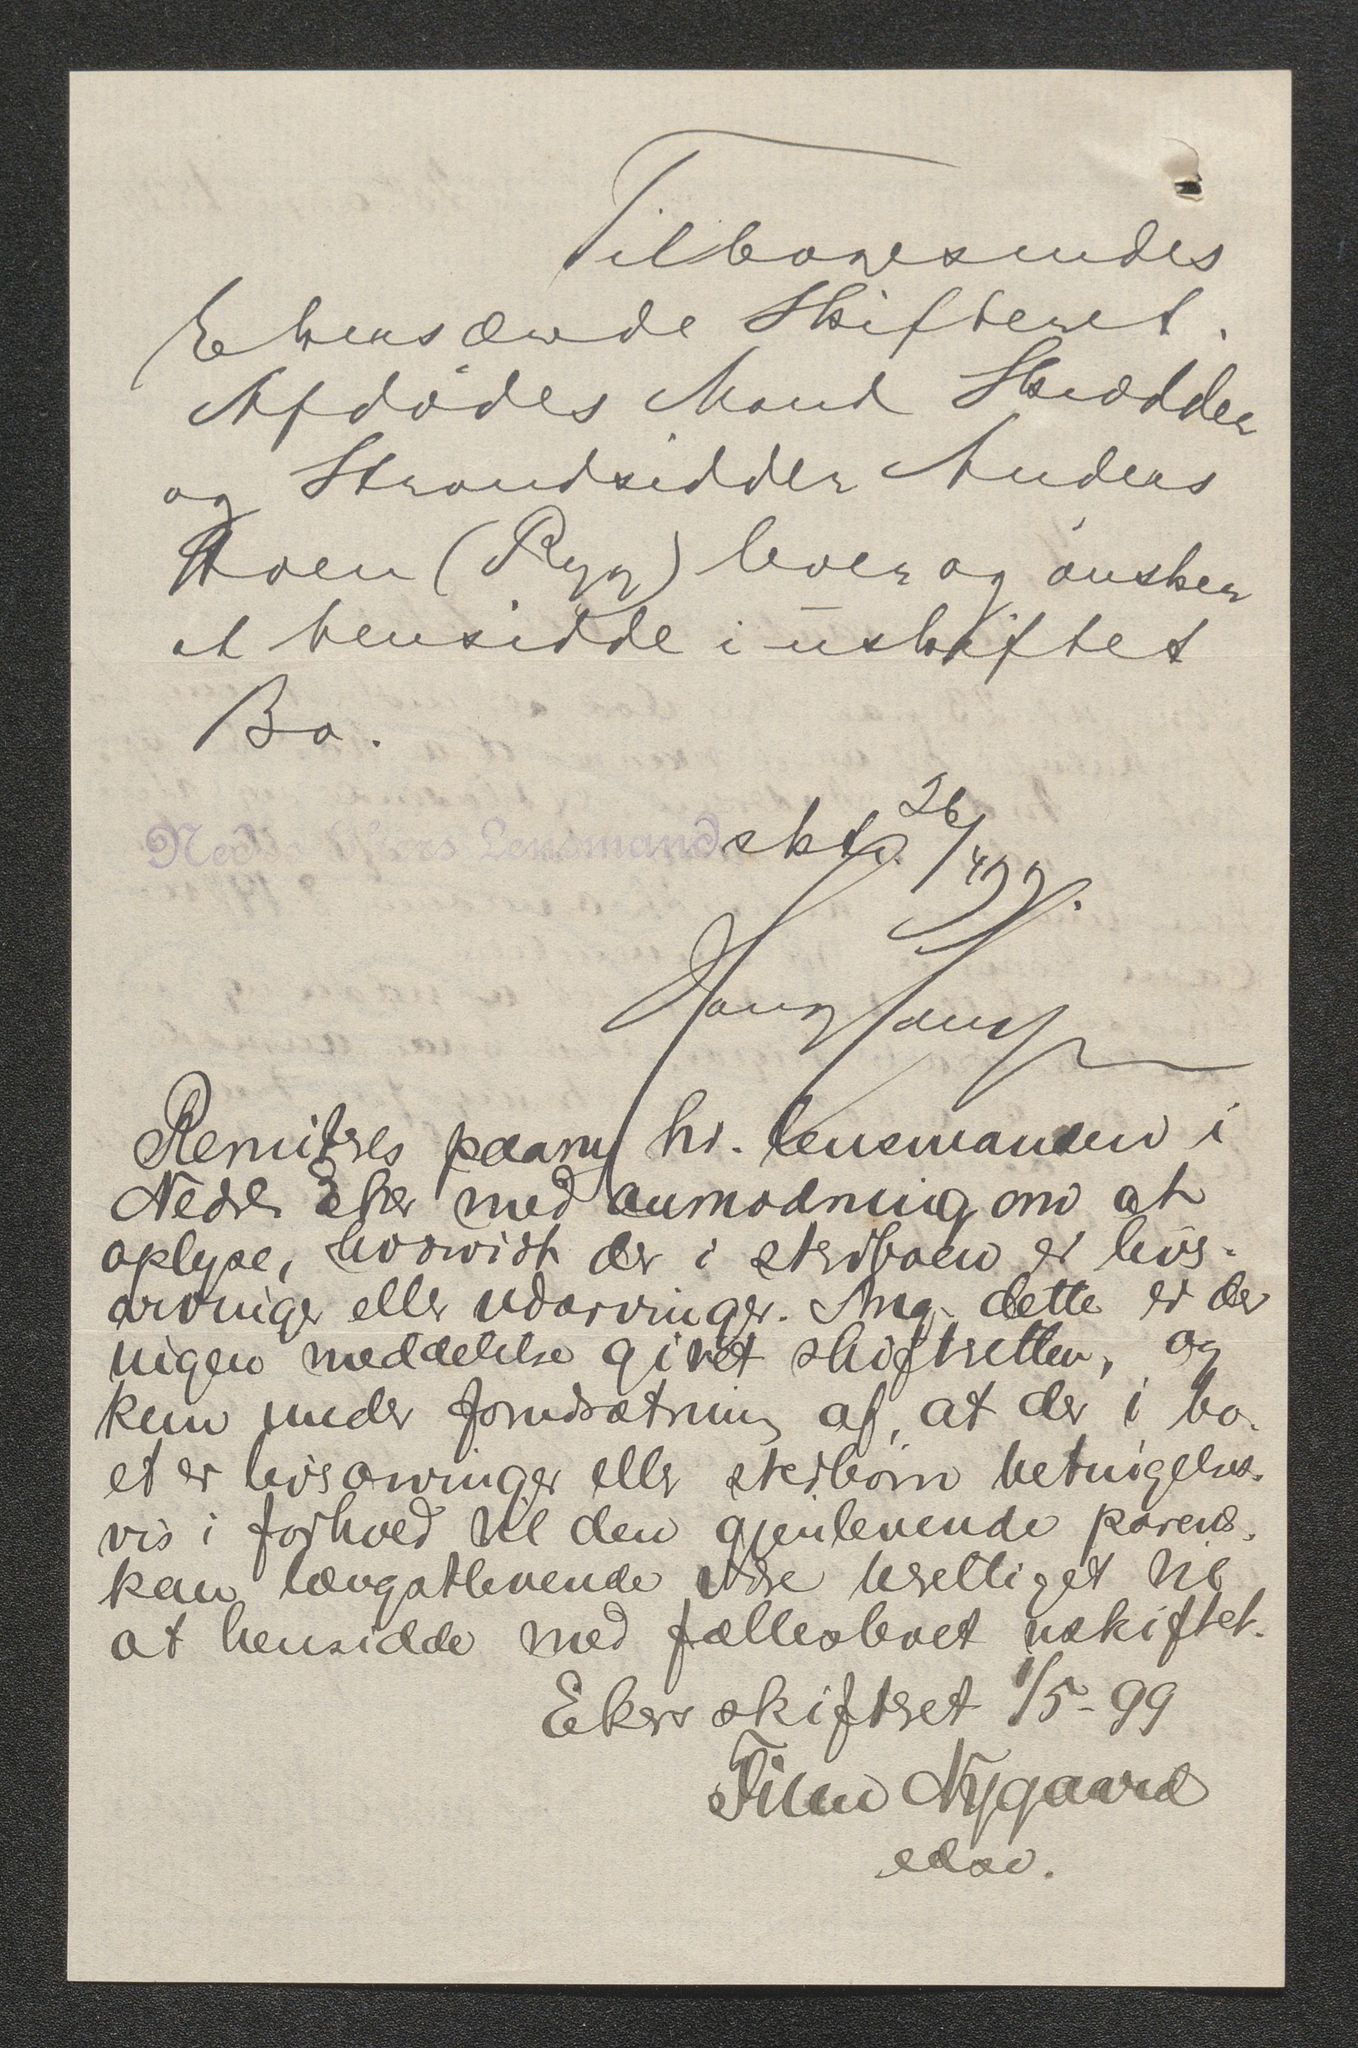 Tilbagesendes
Ekers ærede Skifteret.
Afdødes Mand Skrædder
og Strandsidder Anders
Hoen (Rygg) lever og ønsker
at hensidde i uskiftet
Bo.
Nedre Ekers Lensmand skto. 26/4 99.
Remitres paany hr. lensmanden i
Nedre Eker med anmodning om at
oplyse, hvorvidt der i sterboen er livs-
arvinger eller udarvinger. Ang. dette er der
ingen meddelelse givet skifteretten, og
kun under forudsætning af, at der i bo-
et er livsarvinger eller sterbørn betingelses-
vis i forhold til den gjenlevende parens,
kan længstlevende være berettiget til
at hensidde med fællesboet uskiftet.
Ekers skifteret 1/5-99
Nygaard
edsv.